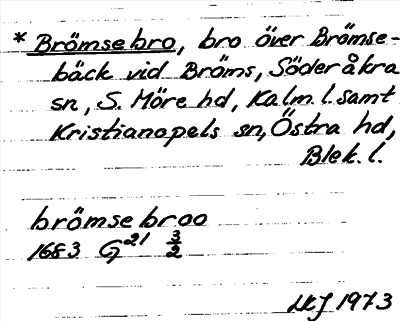 * Brömsebro, bro över Brömse-
bäck vid Bröms, Söderåkra
sn, S. Möre hd, Kalm. l. samt
Kristianopels sn, Östra hd,
Blek. l.
brömse broo
1683 G 21 3/2
1973